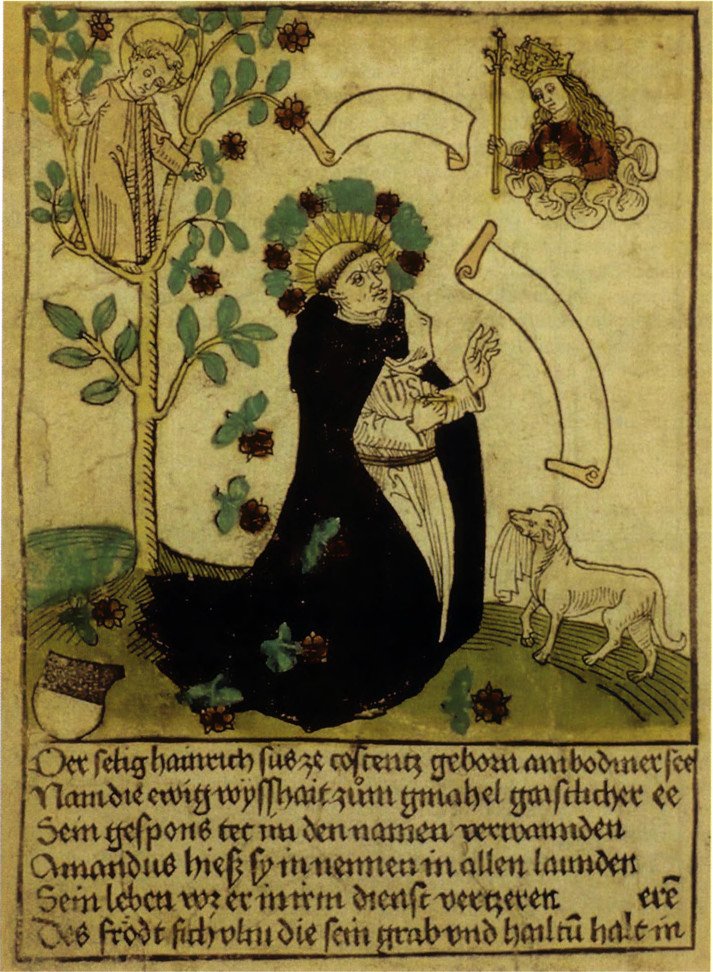 ihs
Der selig hainrich süs ze costentz geborn am bodmer see
Nam die ewig wysshait zům gmahel gaistlicher ee
Sein gespons tet im den namen verwannden
Amandus hieß sy in nennen in allen launden
Sein leben wz er in irm dienst vertzeren
Des frödt sich vlm die sein grab vnd hailtū halt in erē